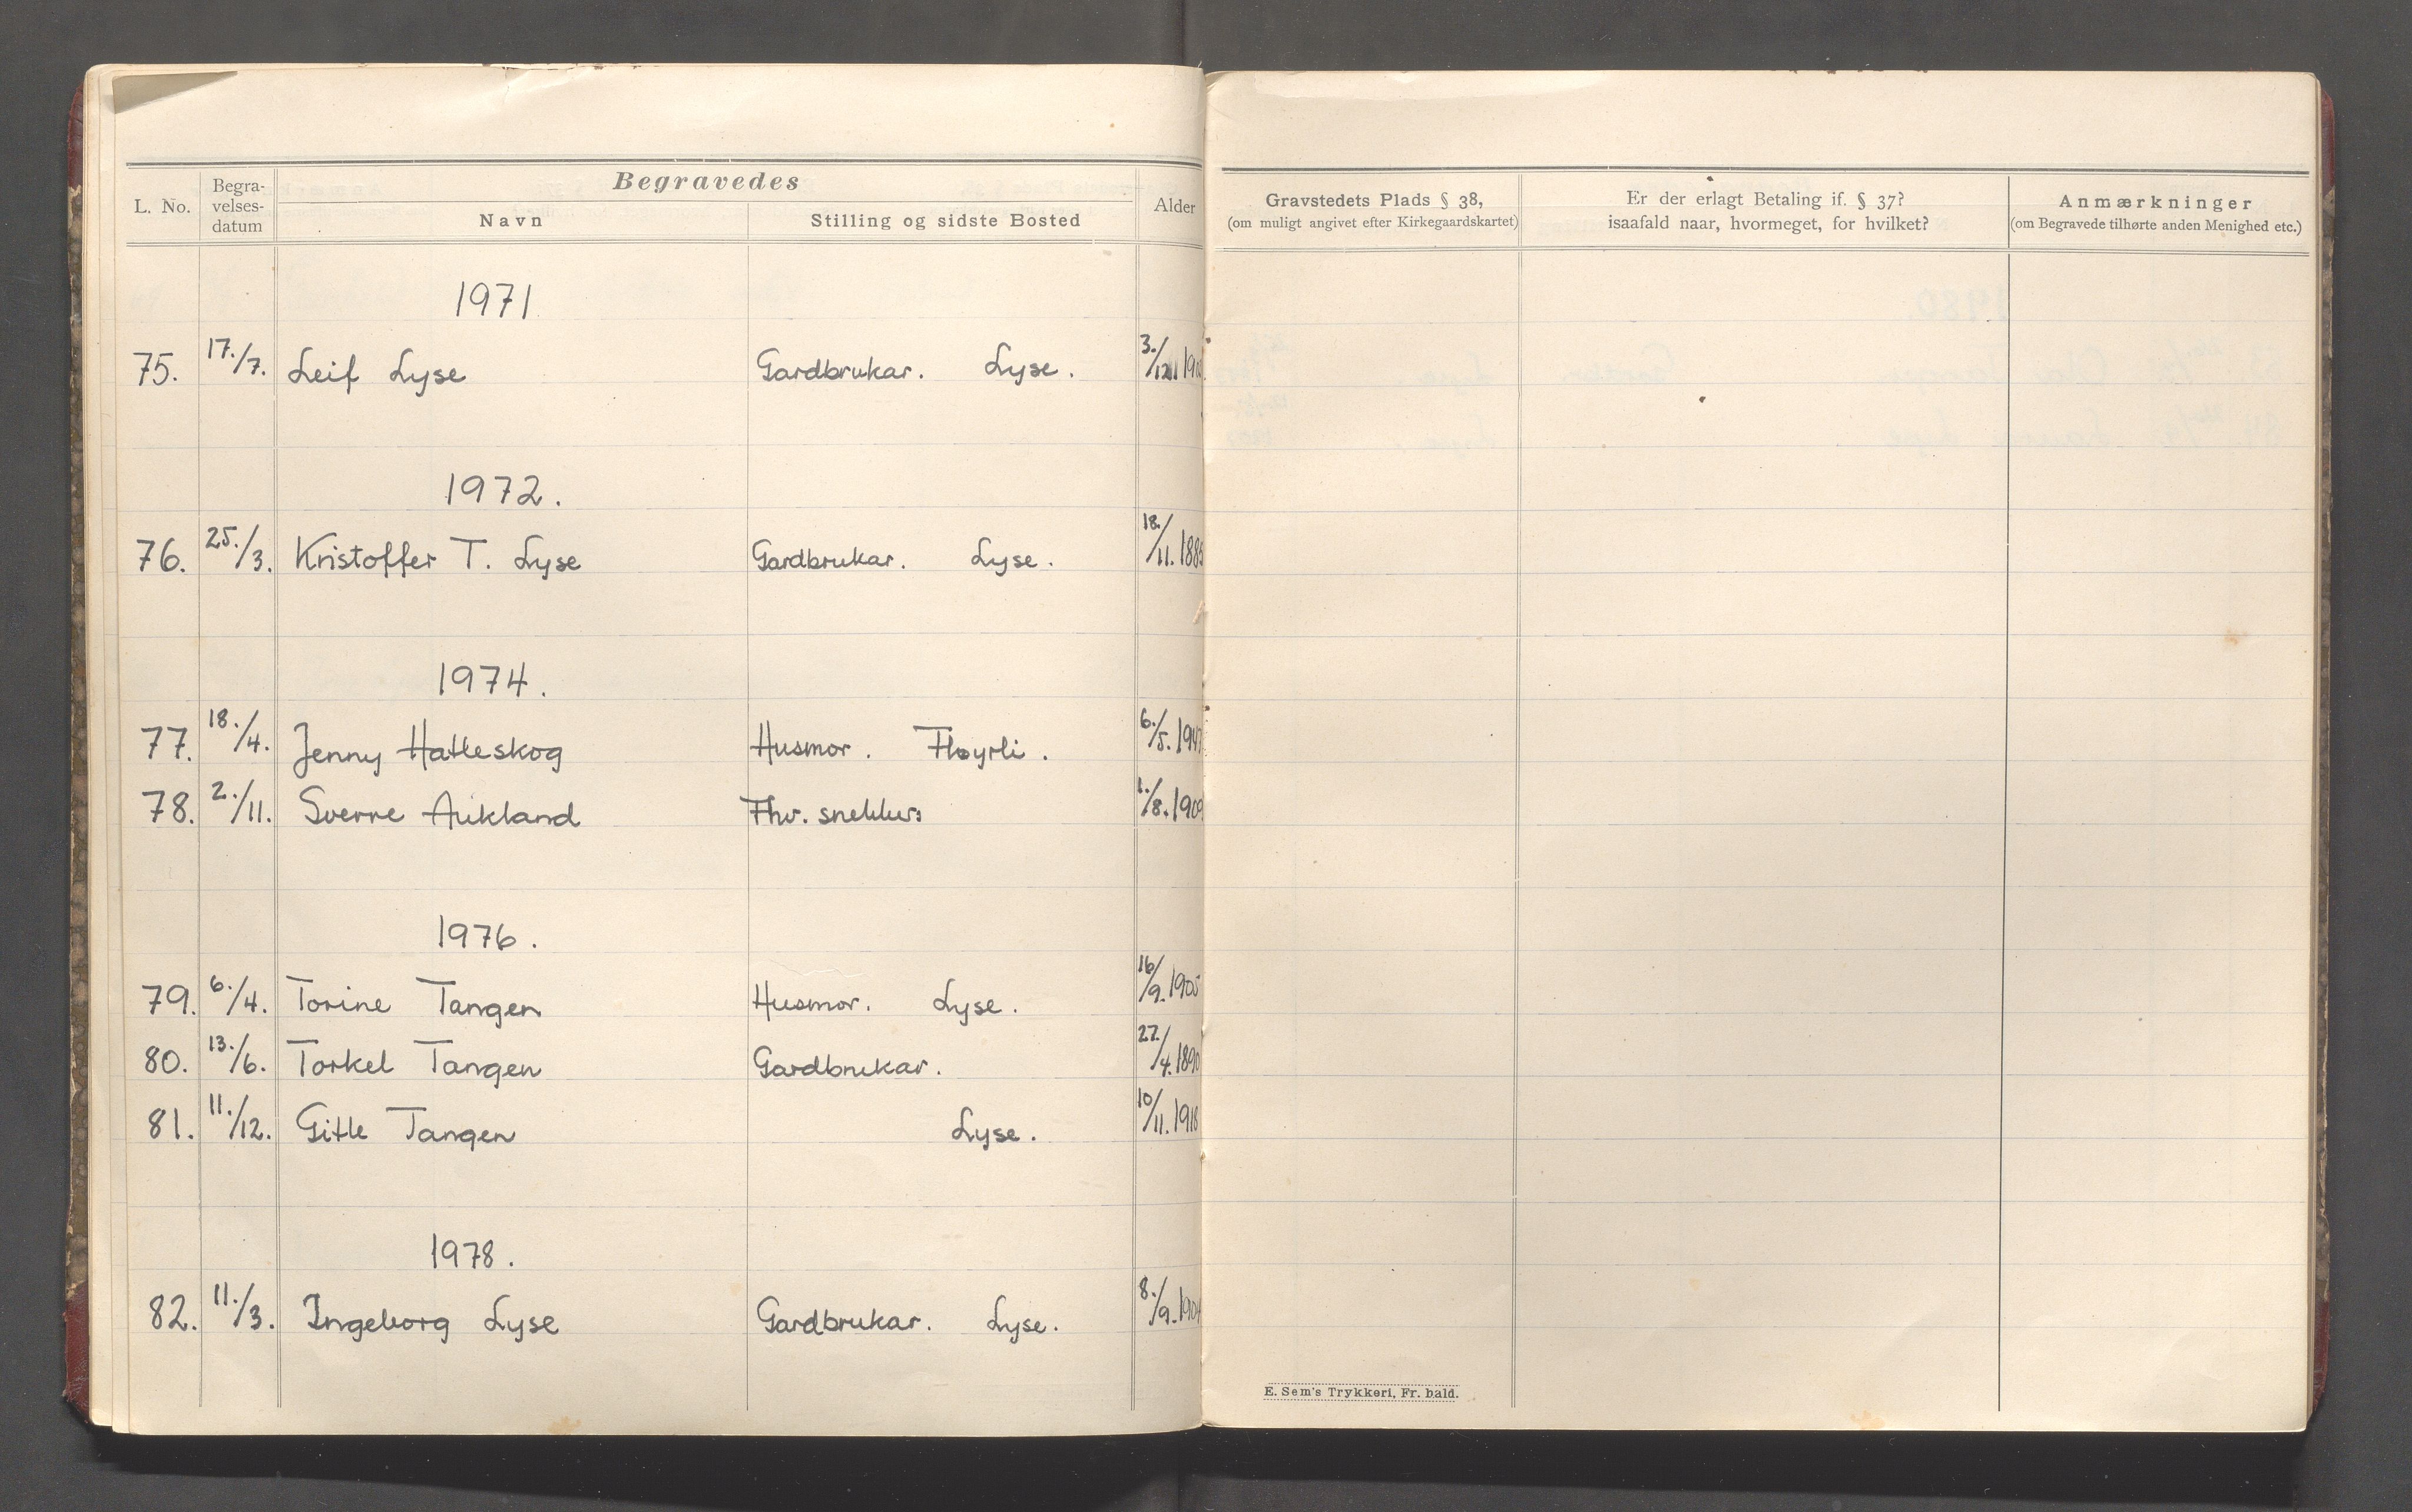 Begravedes
L. No. Begra-velses-datum Navn Stilling og sidste Bosted Alder
Gravstedets Plads § 38, (om muligt angivet efter Kirkegaardskartet)
Er der erlagt Betaling if. § 37? isaafald naar, hvormeget, for hvilket?
Anmærkninger (om Begravede tilhørte anden Menighed etc.)
1971
75. 17./7. Leif Lyse Gardbrukar. Lyse. 3./12
1972.
76. 25./3. Kristoffer T. Lyse Gardbrukar. Lyse. 18./11. 1885
1974.
77. 18./4. Jenny Hatleskog Husmor. Fløyrli. 6./5.
78. 2./11. Sverre Aukland Fhv. snekker 1./8. 1909
1976.
79. 6./4. Torine Tangen Husmor. Lyse. 16/9. 1905
80. 13./6. Torkel Tangen Gardbrukar. 27./4. 1890
81. 11./12. Gitle Tangen Lyse. 10/11. 1918
1978.
82. 11./3. Ingeborg Lyse Gardbrukar. Lyse. 8./9. 1904
E. Sem's Trykkeri, Fr. hald.